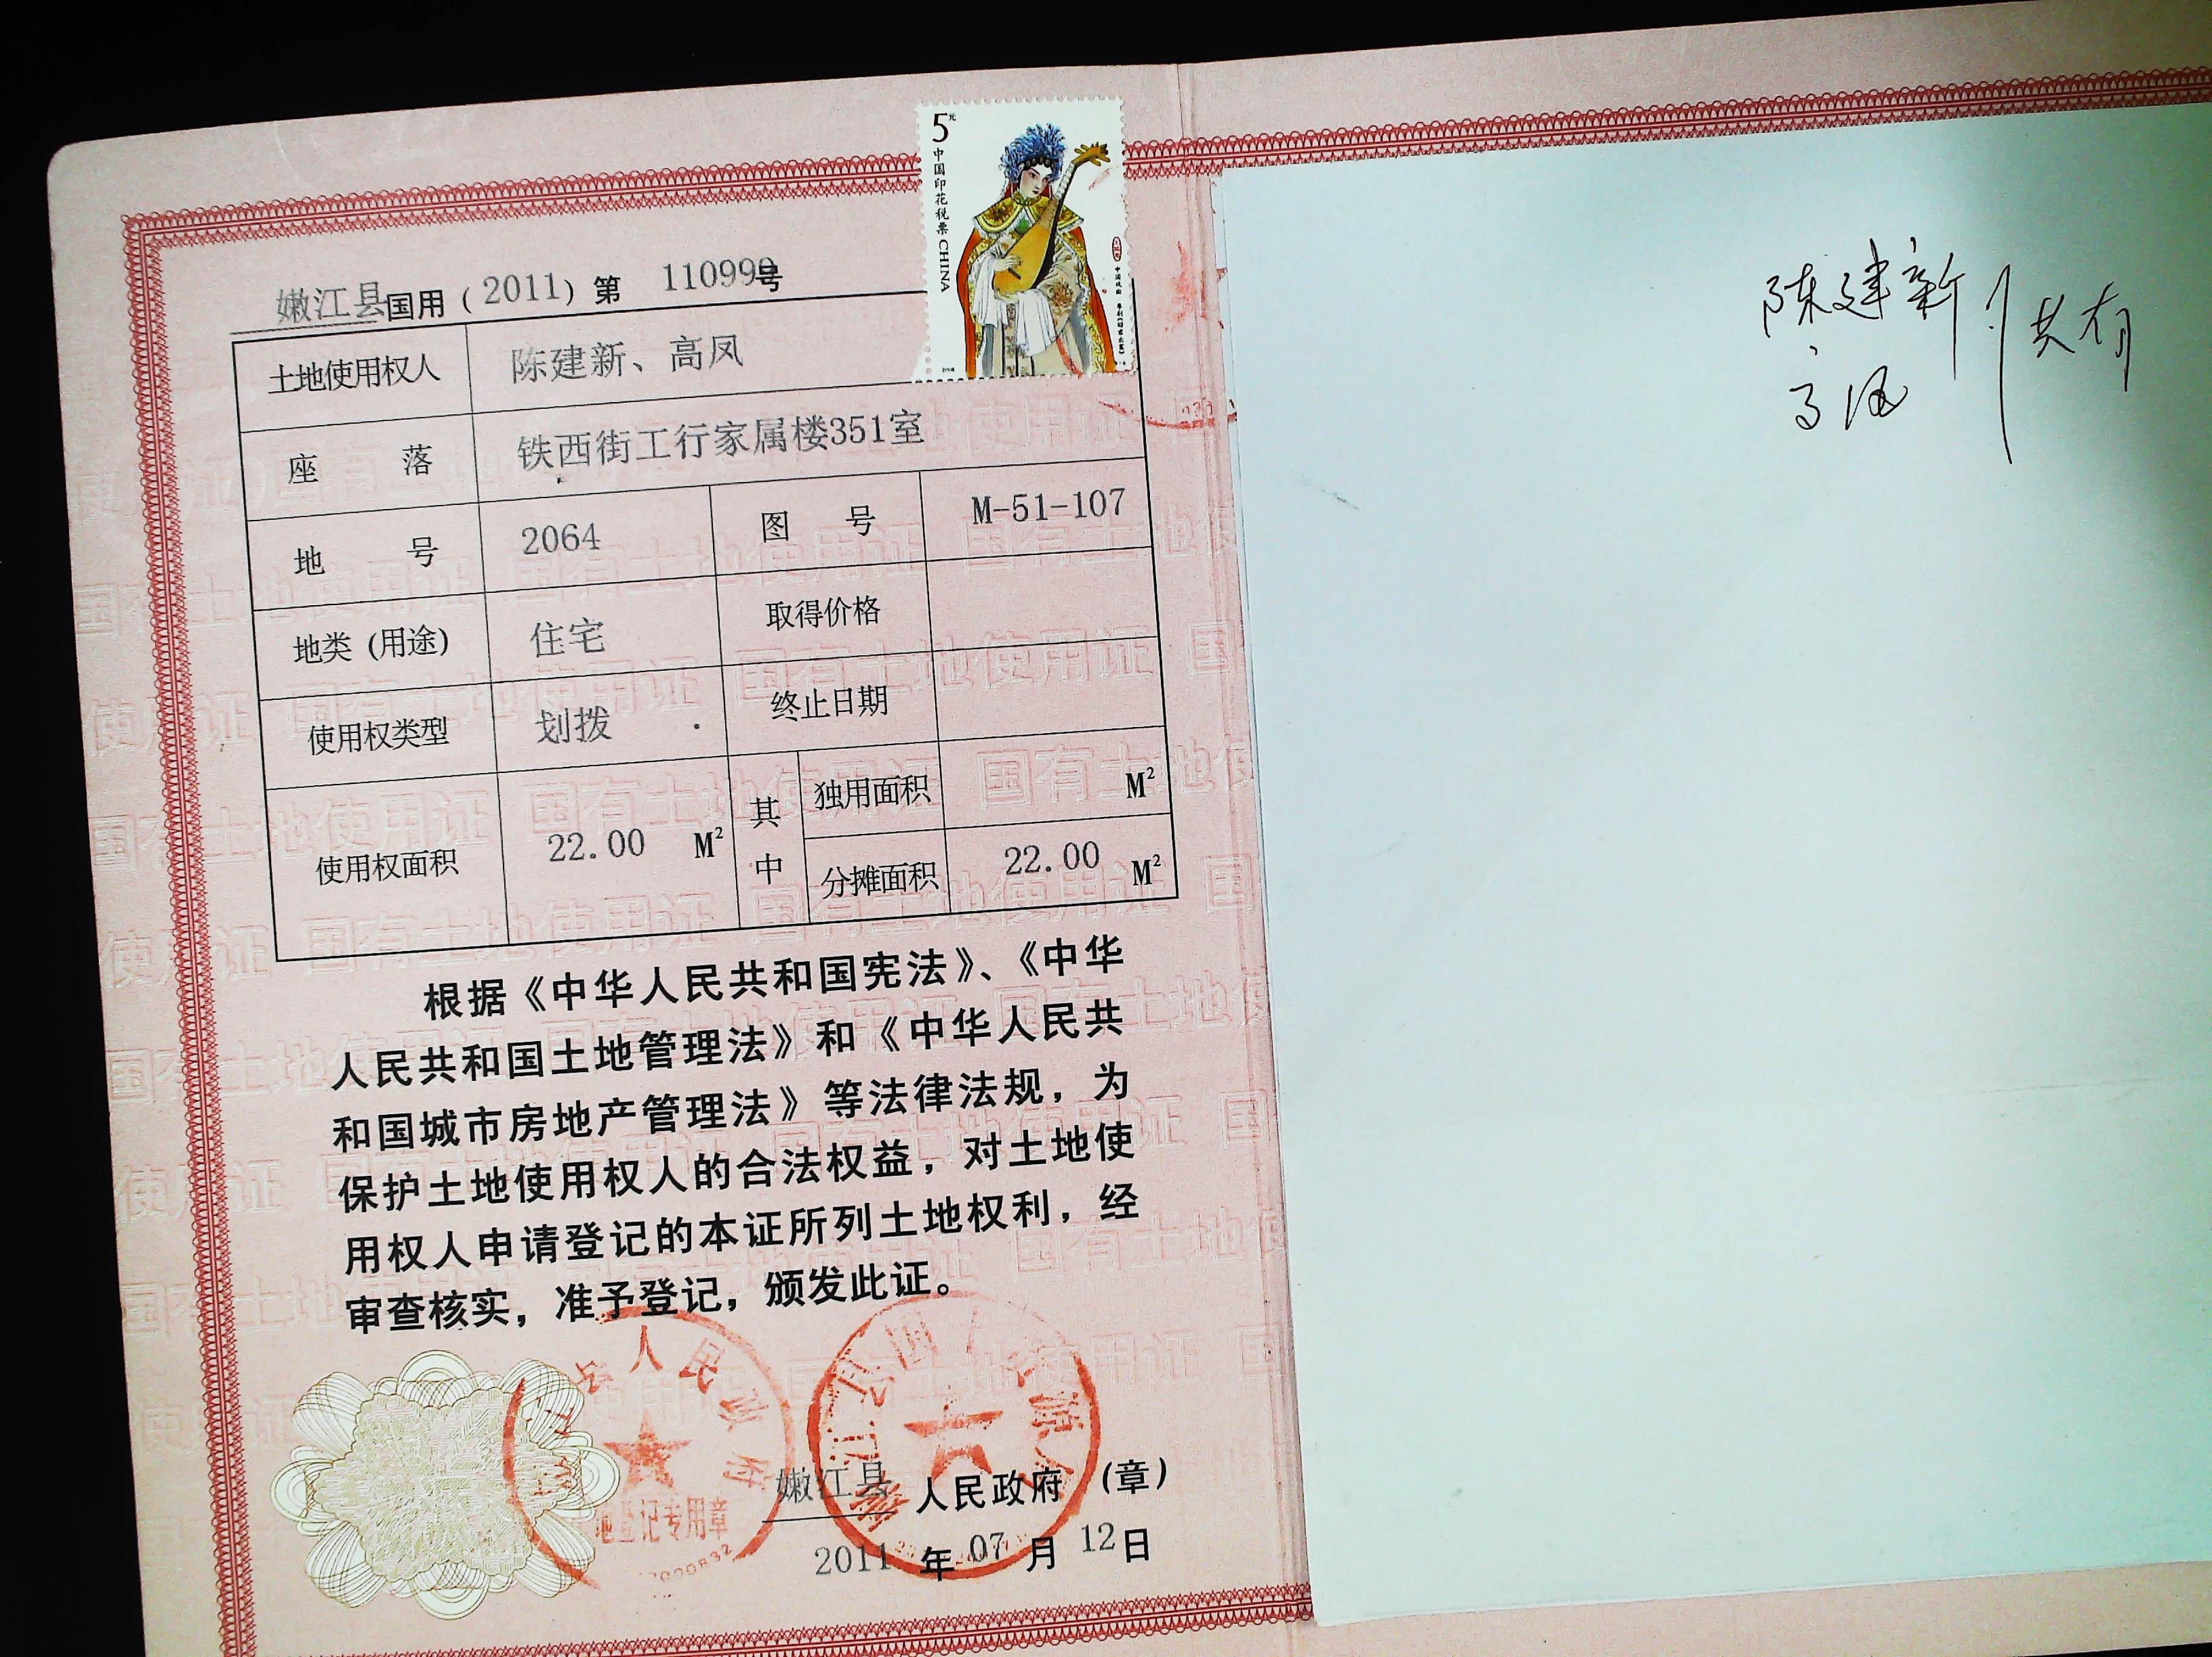 嫩江县国用（2011）第 110999号
5元
中国印花税票 CHINA
土地使用权人 陈建新、高凤
座 落 铁西街工行家属楼351室
地 号 2064 图 号 M-51-107
地类（用途） 住宅 取得价格
使用权类型 划拨 终止日期
使用权面积 22.00 M² 其中 独用面积 M²
分摊面积 22.00 M²
根据《中华人民共和国宪法》、《中华
人民共和国土地管理法》和《中华人民共
和国城市房地产管理法》等法律法规，为
保护土地使用权人的合法权益，对土地使
用权人申请登记的本证所列土地权利，经
审查核实，准予登记，颁发此证。
人民政府
登记专用章
嫩江县 人民政府 （章）
2011 年 07 月 12 日
陈建新
高凤
共有